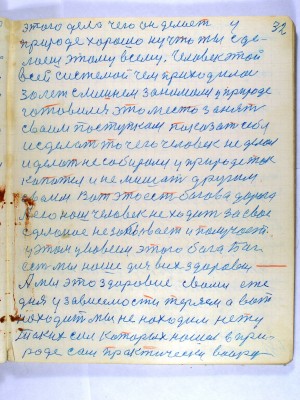 этого дела чего он делает у 32
природе хорошо ну что ты сде-
лаеш этому всему. Человек этой
всей системой чем приходилос
за лет слишнем занимат у природе
готовился это место занят
своим поступкам показат себя
и сделат то чего человек не делал
и делат не собирался у природе так
копатся и не мешат другому
своим Вот это ест богова дорога
Легло наш человек не ходит за свое
сделаное не заповает и получает.
у этом уповаем этого бога Бог
ест мы наше для всих здоровя
А мы это здоровие своими еже
дня у зависемости теряем а вот
находит мы не находим нету
таких сил которых нашол в при-
роде сам практически